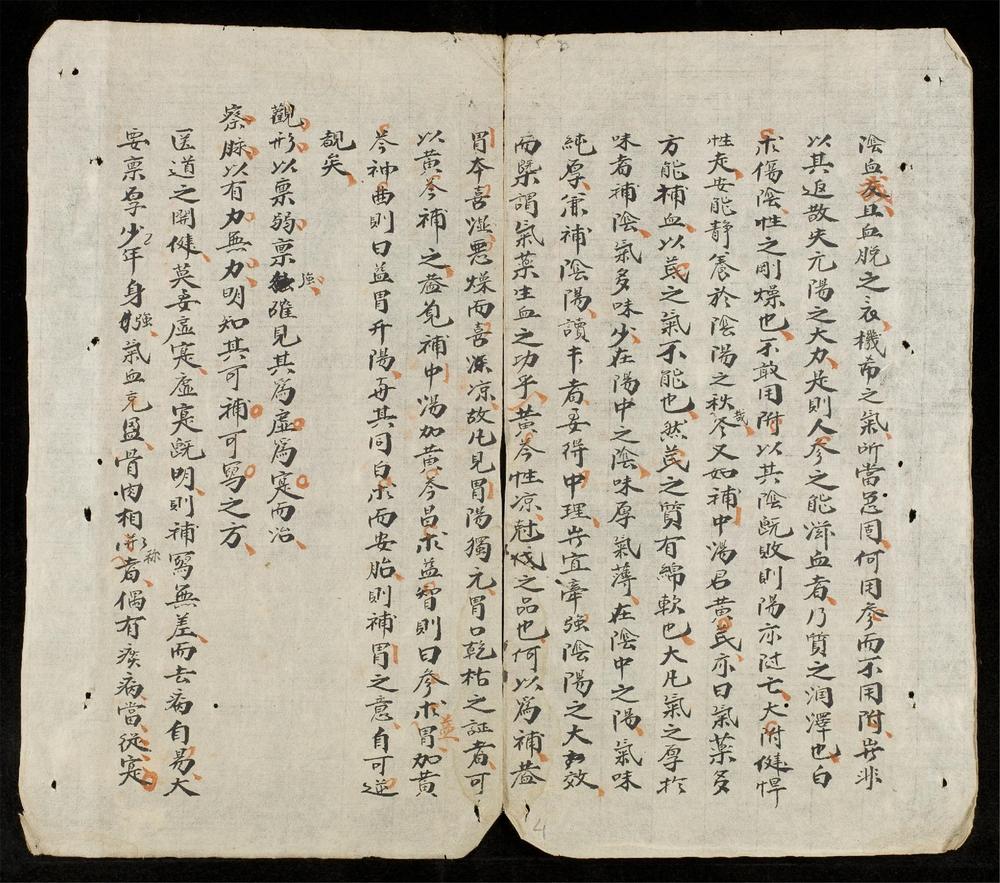 陰血衰且血脱之衣機希之氣所當忽固何用參而不用附岂非
以其迫散失元陽之大力是則人參之能滋血者乃質之润澤也白
术傷陰性之剛燥也不敢用附以其陰既敗則陽亦随亡大附健悍
性走安能静養於陰陽之秋哉参又如補中湯君黄芪亦曰氣藥多
方能補血以芪之氣不能也然芪之質有綿軟也大凡氣之厚於
味者補陰氣多味少在陽中之陰味厚氣薄在陰中之陽氣味
純厚兼補陰陽讀本者妄得中理岂宜牽強陰陽之大效
而槩謂氣藥生血之功乎黄芩性凉尅伐之品也何以爲補益
胃本喜湿悪燥而喜凉故凡見胃陽獨亢胃口乾枯之証者可
以黄芩補之益見補中湯加黄芩昌术益智則曰參术益胃加黄
芩神曲則曰益胃升陽再其同白术而安胎則補胃之意自可逆
覩矣
觀形以禀弱禀強確見其爲虚爲寔而治
察脉以有力無力明知其可補可寫之方
医道之関健莫妄虚寔虚寔既明則補寫無差而去病自易大
要禀厚少年身強氣血充盈骨肉相称者偶有疾病當從寔
4